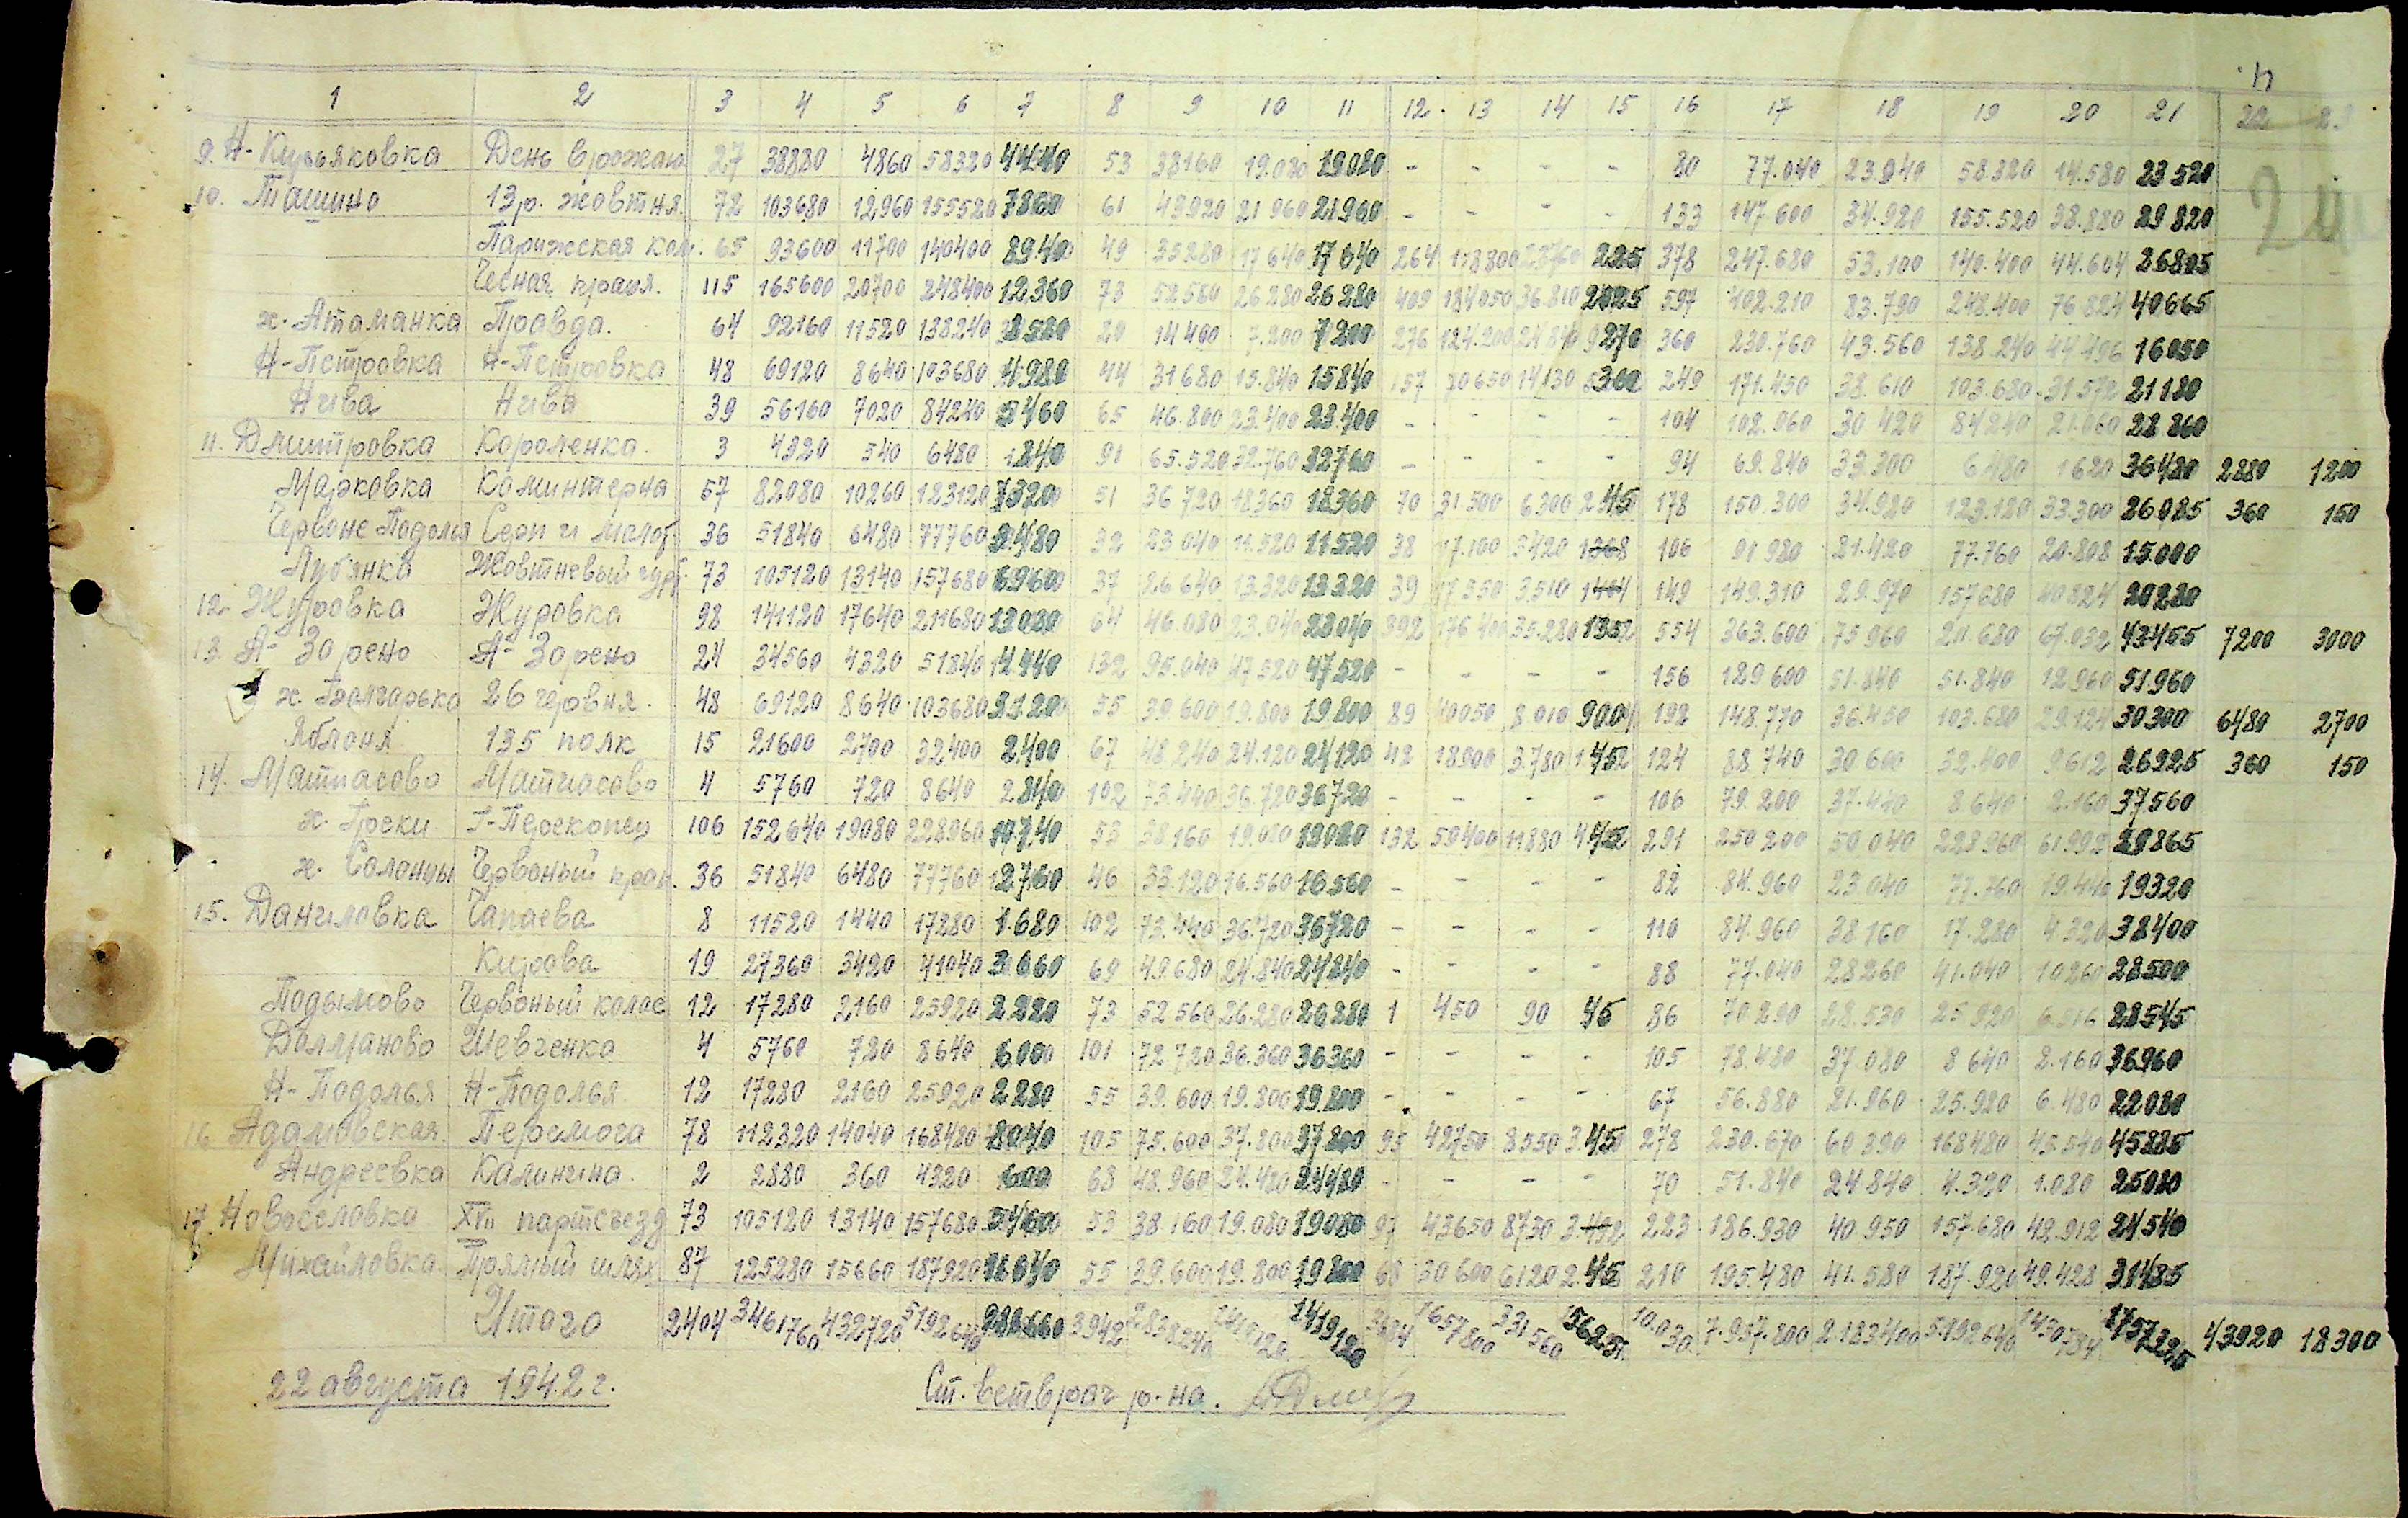 1 2 3 4 5 6 7 8 9 10 11 12 13 14 15 16 17 18 19 20 21 22
9. Н-Кирьяковка День врожаю 27 38880 4860 58320 4440 53 38160 19.080 19080 - - - - 80 77.040 23.940 58.320 14.580 23520
10. Ташино 13 р. жовтня. 72 103680 12960 155520 7860 61 43920 21960 21960 - - - - 133 147.600 34.920 155.520 38.880 29820
Парижская ком. 65 93600 11700 140400 8940 49 35280 17640 17640 264 118800 23760 225 378 247.680 53.100 140.400 44.604 26805
Чесная праця. 115 165600 20700 248400 12360 73 52560 26280 26280 409 184050 36.810 2025 597 402.210 83.790 248.400 76824 40665
х. Атаманка Правда. 64 92160 11520 138240 8580 20 14400 7.200 7200 276 124.200 24840 9270 360 230.760 43.560 138.240 44.496 16050
Н-Петровка Н-Петровка 48 69120 8640 103680 4980 44 31680 15.840 15840 157 70650 14130 5360 249 171.450 38.610 103.680 31572 21180
Нива Нива 39 56160 7020 84240 5460 65 46.800 23.400 23.400 - - - - 104 102.960 30420 84240 21.060 28860
11. Дмитровка Короленка. 3 4320 540 6480 1840 91 65.520 32.760 32760 - - - - 94 69.840 33.300 6480 1620 36480 2880 1200
Марковка Каминтерна 57 82080 10260 123120 7320 51 36720 18360 18360 70 31.500 6300 245 178 150.300 34.920 123.120 33.300 26085 360 150
Червоне Подолья Серп и молот 36 51840 6480 77760 3480 32 23040 11.520 11520 38 17.100 3420 1368 106 91980 21.420 77.760 20.808 15.000
Лубянка Жовтневый гурт. 73 105120 13140 157680 6960 37 26640 13.320 13320 39 17550 3510 1404 149 149.310 29.970 157680 40824 20280
12. Журовка Журовка 98 141120 17640 211680 13080 64 46.080 23.040 23040 392 176400 35.280 1352 554 363.600 75960 211.680 67.032 43455 7200 3000
13. А-Зорено А-Зорено 24 34560 4320 51840 4440 132 95.040 47520 47520 - - - - 156 129600 51.840 51.840 12960 51960
х. Болгарька 26 червня. 48 69120 8640 103680 3120 55 39600 19.800 19.800 89 40050 8.010 9004 192 148.770 36.450 103.680 29.124 30300 6480 2700
Яблоня 135 полк 15 21600 2700 32400 2400 67 48240 24.120 24120 42 18900 3.780 1452 124 88740 30.600 32.400 9612 26925 360 150
14. Матиасово Матиасово 4 5760 720 8640 2840 102 73.440 36.720 36720 - - - - 106 79.200 37.440 8640 2.160 37560
х. Греки Г-Перекопец 106 152640 19080 228960 10740 53 38160 19.080 19080 132 59400 11880 4452 291 250200 50040 228960 61992 29865
х. Солонцы Червоный прап. 36 51840 6480 77760 2760 46 33.120 16.560 16560 - - - - 82 84.960 23040 77.760 19.440 19320
15. Даниловка Чапаева 8 11520 1440 17280 1.680 102 73.440 36.720 36720 - - - - 110 84.960 38160 17.280 4320 38400
Кирова 19 27360 3420 41040 3660 69 49680 24.840 24840 - - - - 88 77.040 28260 41.040 10260 28500
Подымово Червоный колос 12 17280 2160 25920 2220 73 52560 26.280 26280 1 450 90 45 86 70290 28.530 25920 6.516 28545
Долманово Шевченко 4 5760 720 8640 600 101 72.720 36.360 36360 - - - - 105 78.480 37080 8640 2.160 36960
Н-Подолья Н-Подолья 12 17280 2160 25920 2280 55 39.600 19.800 19.800 - - - - 67 56.880 21.960 25.920 6.480 22080
16 Адамовская. Перемога 78 112320 14040 168480 8040 105 75.600 37.800 37800 95 42750 8550 3450 278 230.670 60390 168480 45.540 45885
Андреевка Калинина. 2 2880 360 4320 600 68 48.960 24.480 24480 - - - - 70 51.840 24840 4.320 1.080 25080
17. Новоселовка XVII партсъезд 73 105120 13140 157680 5460 53 38.160 19.080 19080 97 43650 8730 3492 223 186.930 40.950 157.680 42.912 24540
Михайловка. Прямый шлях 87 125280 15660 187920 11640 55 39.600 19.800 19800 68 30600 6120 245 210 195.480 41.580 187.920 49.428 31485
Итого 2404 3461760 432720 5192640 3942 2838240 1419120 1419120 3684 1657800 331560 10.030 7.957.800 2.183400 5.192640 1430784 43920 18300
22 августа 1942 г.
Ст. ветврач р-на.